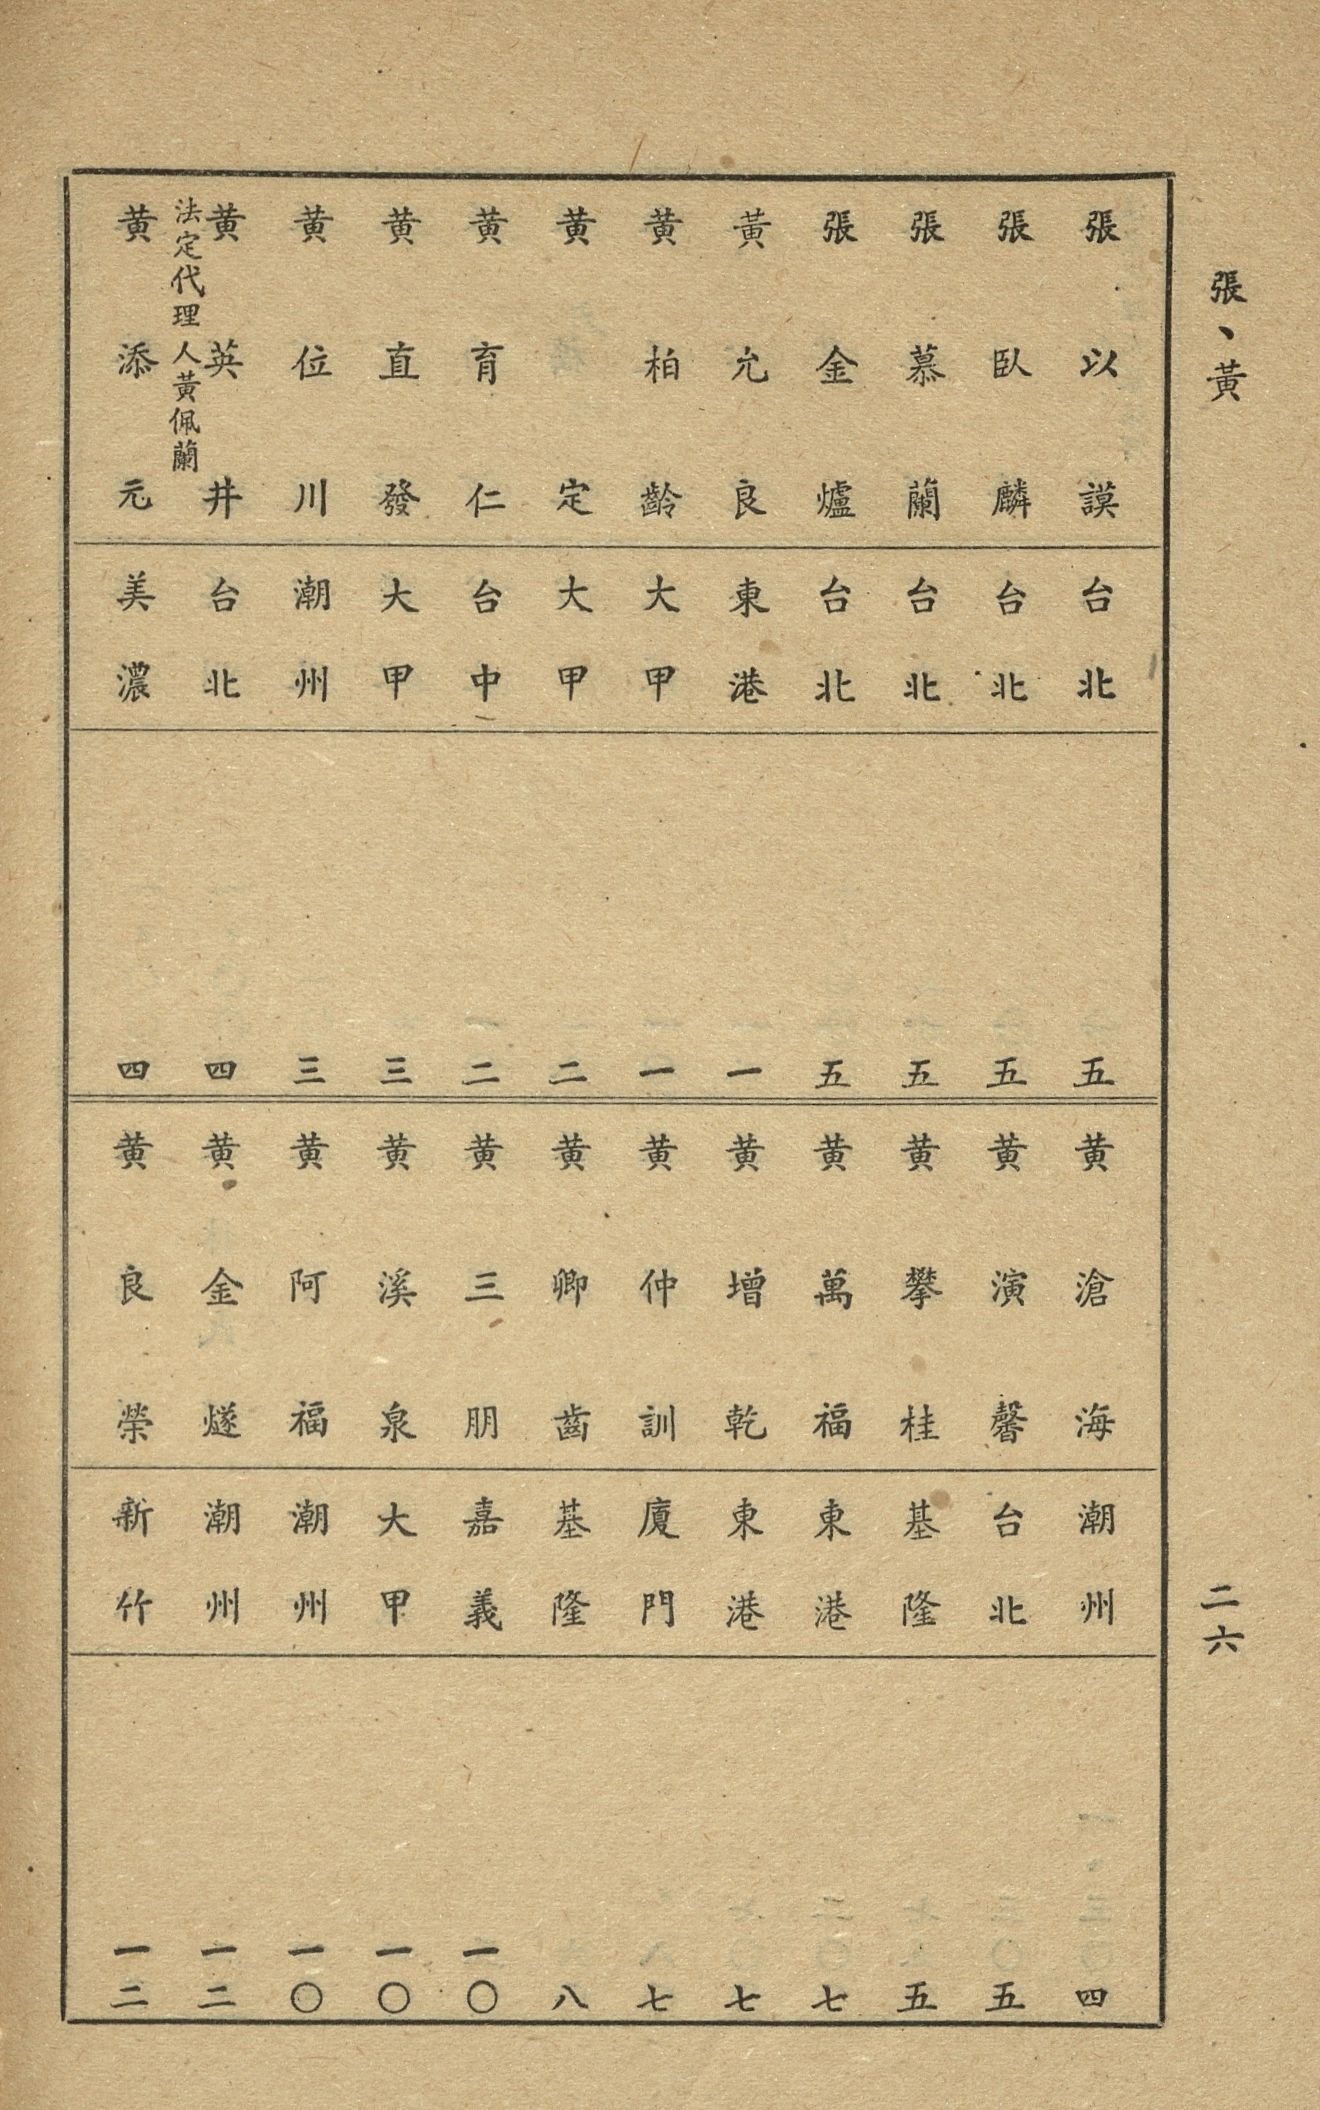 張、黃
二六
張以謨 台北 五
張臥麟 台北 五
張慕蘭 台北 五
張金爐 台北 五
黃允良 東港 一
黃柏齡 大甲 一
黃定 大甲 二
黃育仁 台中 二
黃直發 大甲 三
黃位川 潮州 三
黃英井 台北 四
法定代理人黃佩蘭
黃添元 美濃 四
黃滄海 潮州 四
黃演馨 台北 五
黃攀桂 基隆 五
黃萬福 東港 七
黃增乾 東港 七
黃仲訓 廈門 七
黃卿齒 基隆 八
黃三朋 嘉義 一〇
黃溪泉 大甲 一〇
黃阿福 潮州 一〇
黃金燧 潮州 一二
黃良榮 新竹 一二